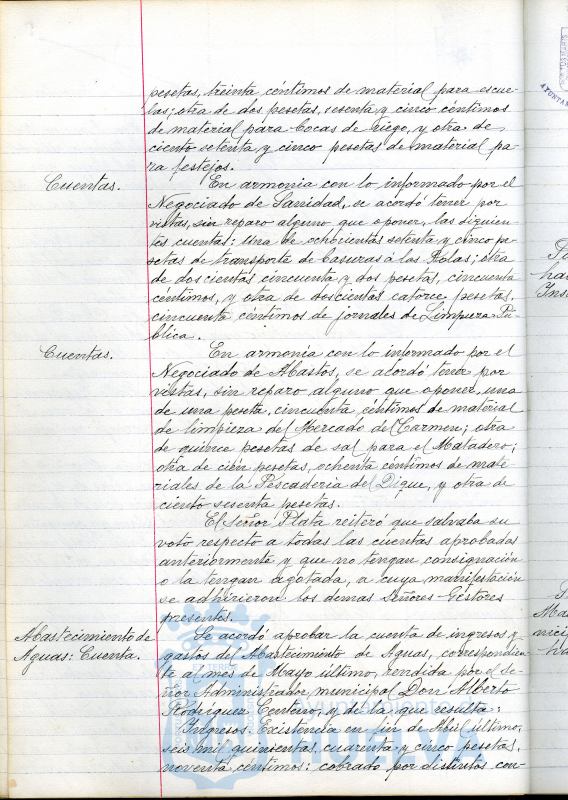 pesetas, treinta céntimos de material para escue-
las; otra de dos pesetas, sesenta y cinco céntimos
de material para bocas de riego, y otra de
ciento setenta y cinco pesetas de material pa-
ra festejos.
Cuentas.
En armonia con lo informado por el
Negociado de Sanidad, se acordó tener por
vistas, sin reparo alguno que oponer, las siguien-
tes cuentas: Una de ochocientas setenta y cinco pe-
setas de transporte de basuras a las Rolas; otra
de doscientas cincuenta y dos pesetas, cincuenta
céntimos, y otra de doscientas catorce pesetas,
cincuenta céntimos de jornales de Limpieza Pú-
blica.
Cuentas.
En armonia con lo informado por el
Negociado de Abastos, se acordó tener por
vistas, sin reparo alguno que oponer, una
de una peseta, cincuenta céntimos de material
de limpieza del Mercado del Carmen; otra
de quince pesetas de sal para el Matadero;
otra de cien pesetas, ochenta céntimos de mate-
riales de la Pescaderia del Dique, y otra de
ciento sesenta pesetas.
El Señor Plata reiteró que salvaba su
voto respecto a todas las cuentas aprobadas
anteriormente y que no tengan consignación
o la tengan agotada, a cuya manifestación
se adhirieron los demas Señores Gestores
presentes.
Abastecimiento de
Aguas: Cuenta.
Se acordó aprobar la cuenta de ingresos y
gastos del Abastecimiento de Aguas, correspondien-
te al mes de Mayo último, rendida por el Se-
ñor Administrador municipal Don Alberto
Rodriguez Centeno, y de la que resulta:
Ingresos. Existencia en fin de Abril último,
seis mil quinientas cuarenta y cinco pesetas,
noventa céntimos: cobrado por distintos con-